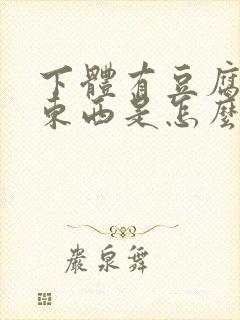 下體有豆腐
東西是怎麼
巖泉舞